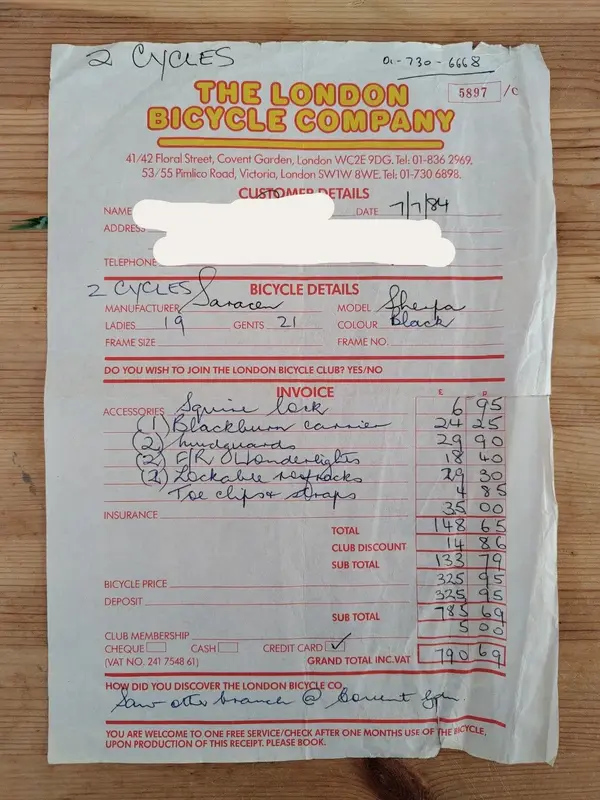 2 CYCLES
01-730-6668
5897 /C
THE LONDON
BICYCLE COMPANY
41/42 Floral Street, Covent Garden, London WC2E 9DG. Tel: 01-836 2969.
53/55 Pimlico Road, Victoria, London SW1W 8WE. Tel: 01-730 6898.
CUSTOMER DETAILS
NAME DATE 7/7/84
ADDRESS
TELEPHONE
2 CYCLES BICYCLE DETAILS
MANUFACTURER Saracen MODEL Sherpa
LADIES 19 GENTS 21 COLOUR Black
FRAME SIZE FRAME NO.
DO YOU WISH TO JOIN THE LONDON BICYCLE CLUB? YES/NO
INVOICE £ P
ACCESSORIES Squire lock 6 95
(1) Blackburn carrier 24 25
(2) mudguards 29 90
(2) F/R Wonderlights 18 40
(2) Lockable 29 30
Toe clips + straps 4 85
INSURANCE 35 00
TOTAL 148 65
CLUB DISCOUNT 14 86
SUB TOTAL 133 79
BICYCLE PRICE 325 95
DEPOSIT 325 95
SUB TOTAL 785 69
CLUB MEMBERSHIP 5 00
CHEQUE CASH CREDIT CARD ✓
(VAT NO. 241 7548 61) GRAND TOTAL INC.VAT 790 69
HOW DID YOU DISCOVER THE LONDON BICYCLE CO.
Saw other branch @ Covent Gdn.
YOU ARE WELCOME TO ONE FREE SERVICE/CHECK AFTER ONE MONTHS USE OF THE BICYCLE,
UPON PRODUCTION OF THIS RECEIPT. PLEASE BOOK.